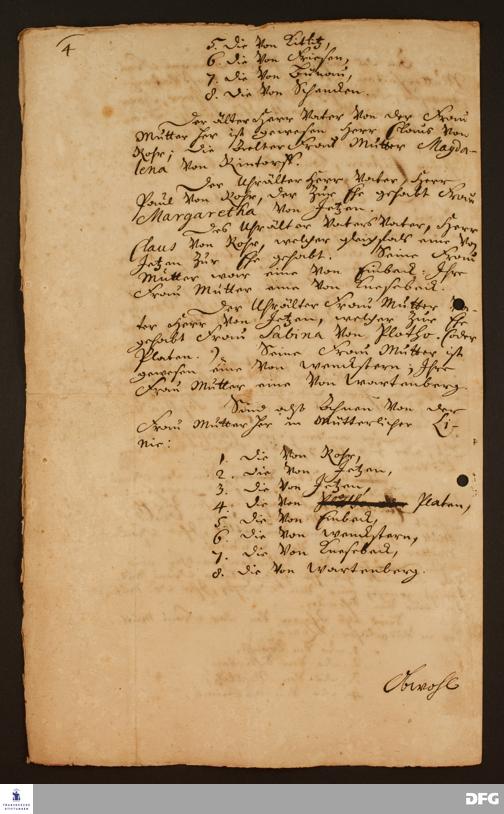 4
5. die Von Kittlitz,
6. die Von Friesen,
7. die Von Bünau,
8. die Von Schencken.
Der älter Herr Vater Von der Frau
Mutter her ist gewesen Herr Claus Von
Rohr; die Aelter Frau Mutter Magda-
lena Von Rintorff.
Der Uhrälter Herr Vater, Herr
Paul Von Rohr, der Zur Ehe gehabt Frau
Margaretha Von Jetzen.
Des Uhrälter Vaters Vater, Herr
Claus Von Rohr, welcher gleichfals eine Von
Jetzen Zur Ehe gehabt. Seine Frau
Mutter war eine Von Einbeck; Ihre
Frau Mutter eine Von Knesebeck.
Der Uhrälter Frau Mutter
ter Herr Von Jetzen, welcher Zur Ehe
gehabt Frau Sabina Von Plotho. (oder
Platen.) Seine Frau Mutter ist
gewesen eine Von Wenckstern; Ihre
Frau Mutter eine Von Wartenberg.
Sind also Ahnen Von der
Frau Mutter her in Mütterlicher Li-
nie:
1. die Von Rohr,
2. die Von Jetzen,
3. die Von Jetzen,
4. die Von Platen,
5. die Von Einbeck,
6. die Von Wenckstern,
7. die Von Knesebeck,
8. die Von Wartenberg.
Obwohl
FRANCKESCHE
STIFTUNGEN
DFG